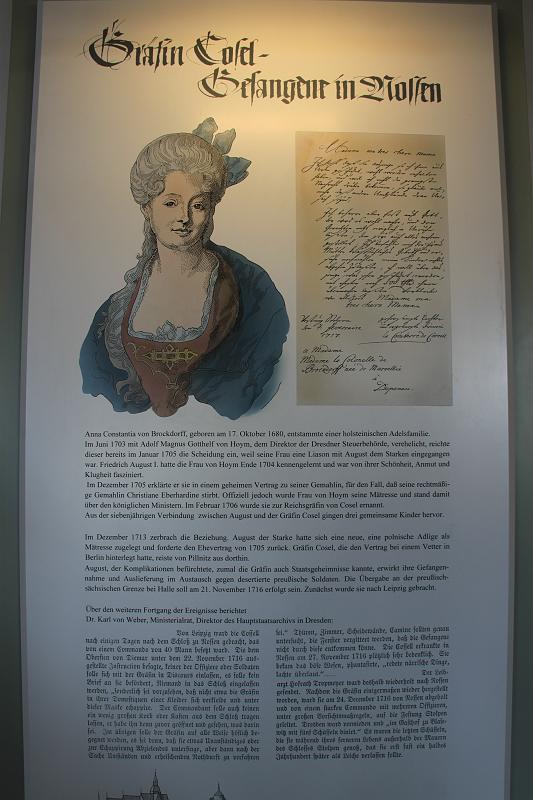 Gräfin Cosel-
Gefangene in Nossen
Madame
Madame la Colonelle de
Brockdorff née de Marvellis
à
Depenau.
Anna Constantia von Brockdorff, geboren am 17. Oktober 1680, entstammte einer holsteinischen Adelsfamilie.
Im Juni 1703 mit Adolf Magnus Gotthelf von Hoym, dem Direktor der Dresdner Steuerbehörde, verehelicht, reichte
dieser bereits im Januar 1705 die Scheidung ein, weil seine Frau eine Liason mit August dem Starken eingegangen
war. Friedrich August I. hatte die Frau von Hoym Ende 1704 kennengelernt und war von ihrer Schönheit, Anmut und
Klugheit fasziniert.
Im Dezember 1705 erklärte er sie in einem geheimen Vertrag zu seiner Gemahlin, für den Fall, daß seine rechtmäßi-
ge Gemahlin Christiane Eberhardine stirbt. Offiziell jedoch wurde Frau von Hoym seine Mätresse und stand damit
über den königlichen Ministern. Im Februar 1706 wurde sie zur Reichsgräfin von Cosel ernannt.
Aus der siebenjährigen Verbindung zwischen August und der Gräfin Cosel gingen drei gemeinsame Kinder hervor.
Im Dezember 1713 zerbrach die Beziehung. August der Starke hatte sich eine neue, eine polnische Adlige als
Mätresse zugelegt und forderte den Ehevertrag von 1705 zurück. Gräfin Cosel, die den Vertrag bei einem Vetter in
Berlin hinterlegt hatte, reiste von Pillnitz aus dorthin.
August, der Komplikationen befürchtete, zumal die Gräfin auch Staatsgeheimnisse kannte, erwirkt ihre Gefangen-
nahme und Auslieferung im Austausch gegen desertierte preußische Soldaten. Die Übergabe an der preußisch-
sächsischen Grenze bei Halle soll am 21. November 1716 erfolgt sein. Zunächst wurde sie nach Leipzig gebracht.
Über den weiteren Fortgang der Ereignisse berichtet
Dr. Karl von Weber, Ministerialrat, Direktor des Hauptstaatsarchivs in Dresden:
Von Leipzig ward die Cosell
nach einigen Tagen nach dem Schloß zu Nossen gebracht, das
von einem Commando von 40 Mann besetzt ward. Die dem
Obristen von Diemar unter dem 22. November 1716 aus-
gestellte Instruction besagt, keiner der Offiziere oder Soldaten
solle sich mit der Gräfin in Discours einlassen, es solle kein
Brief an sie befördert, Niemand in das Schloß eingelassen
werden, „sonderlich sei vorzusehen, daß nicht etwa die Gräfin
in ihrer Domestiquen einer Kleider sich verkleide und unter
dieser Maske echapire. Der Commandant solle auch keinen
ein wenig großen Korb oder Kasten aus dem Schloß tragen
lassen, er habe ihn denn zuvor geöffnet und gesehen, was darin
sei. Im übrigen solle der Gräfin auf alle Weise höflich be-
gegnet werden, es sei denn, daß sie etwas Unanständiges oder
zur Echapirung Abzielendes unterfinge, aber dann nach der
Sache Umständen und erheischenden Nothdurft zu verfahren
sei.“ Thüren, Zimmer, Scheidewände, Camine sollten genau
untersucht, die Fenster vergittert werden, daß die Gefangene
nicht durch diese entkommen könne. Die Cosell erkrankte in
Nossen am 27. November 1716 plötzlich sehr bedenklich. Sie
bekam das böse Wesen, phantasirte, „redete närrische Dinge,
lachte überlaut.“ ..... Der Leib-
arzt Hofrath Troppaneger ward deshalb wiederholt nach Nossen
gesendet. Nachdem die Gräfin einigermaßen wieder hergestellt
worden, ward sie am 24. Dezember 1716 von Nossen abgeholt
und von einem starken Commando mit mehreren Offizieren,
unter großen Vorsichtsmaßregeln, auf die Festung Stolpen
geleitet. Dresden ward vermieden und „im Gasthof zu Blase-
witz mit fünf Schüsseln dinirt.“ Es waren die letzten Schüsseln,
die sie während ihres ferneren Lebens außerhalb der Mauern
des Schlosses Stolpen genoß, das sie erst fast ein halbes
Jahrhundert später als Leiche verlassen sollte.